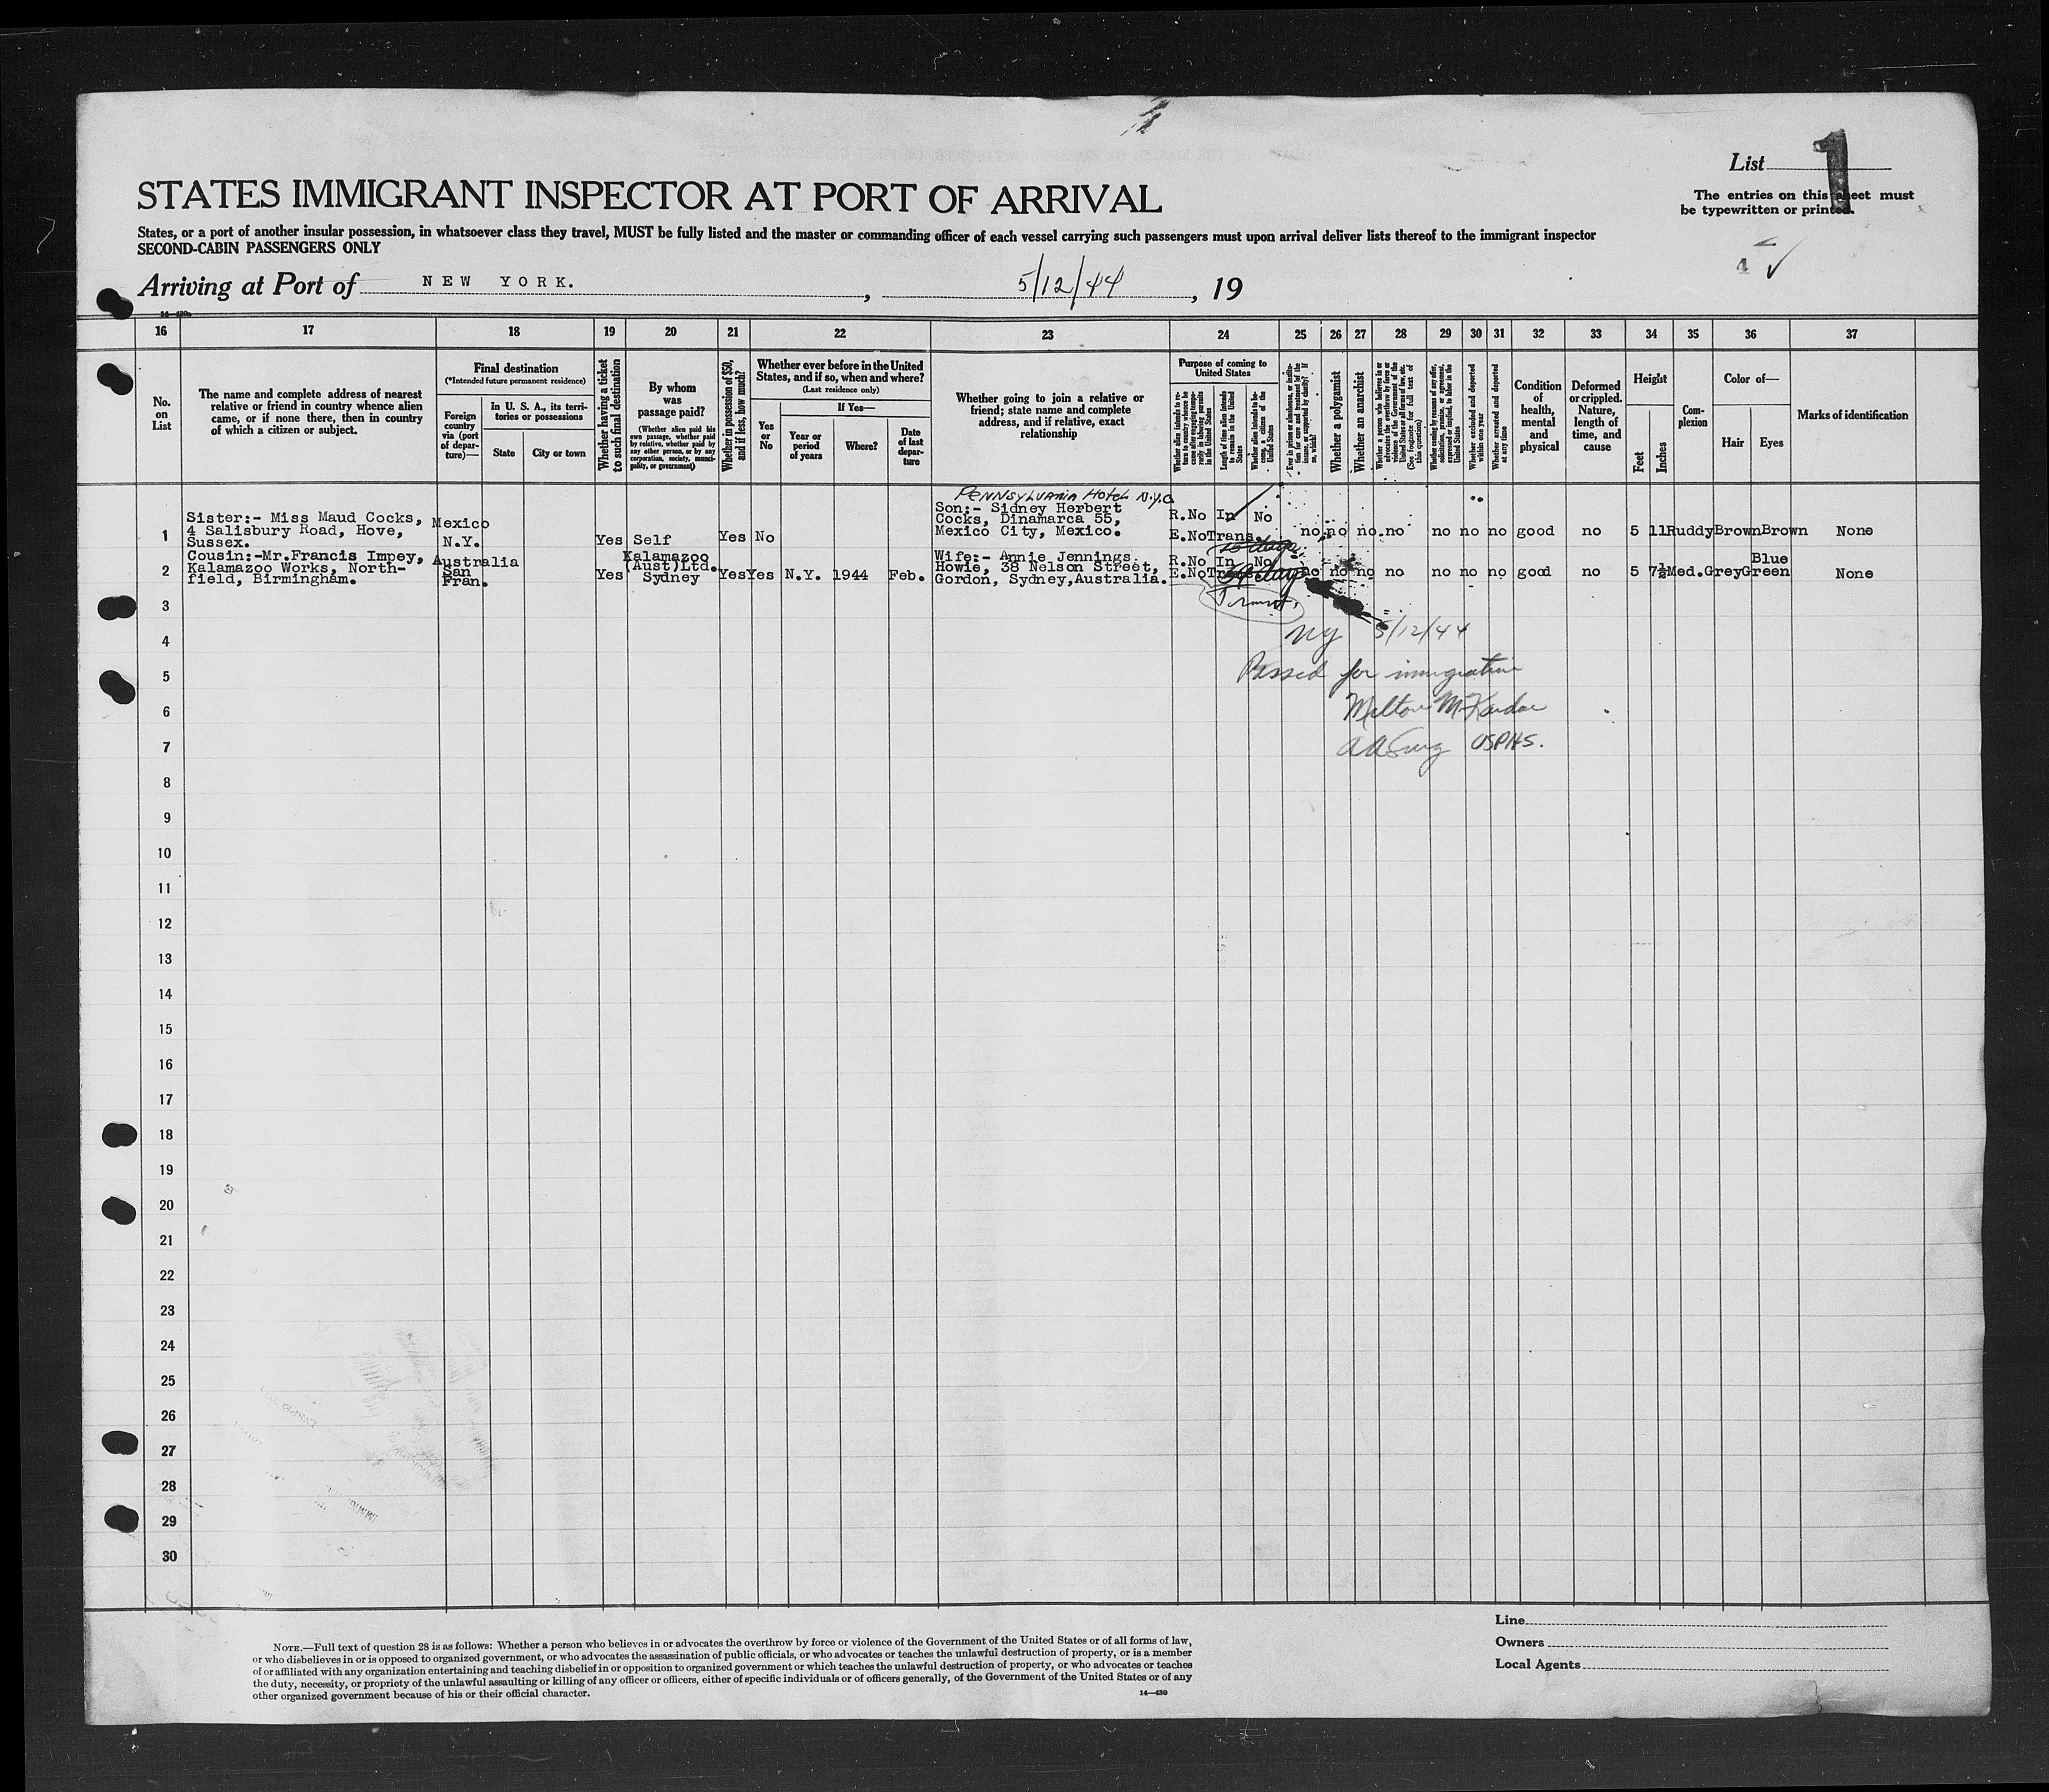 List 1
The entries on this sheet must
be typewritten or printed.
STATES IMMIGRANT INSPECTOR AT PORT OF ARRIVAL
States, or a port of another insular possession, in whatsoever class they travel, MUST be fully listed and the master or commanding officer of each vessel carrying such passengers must upon arrival deliver lists thereof to the immigrant inspector
SECOND-CABIN PASSENGERS ONLY
4 ✓
Arriving at Port of NEW YORK. , 5/12/44 , 19
16 17 18 19 20 21 22 23 24 25 26 27 28 29 30 31 32 33 34 35 36 37
No.
on
List
The name and complete address of nearest
relative or friend in country whence alien
came, or if none there, then in country
of which a citizen or subject.
Final destination
(*Intended future permanent residence)
Foreign
country
via (port
of depar-
ture)—
In U. S. A., its terri-
tories or possessions
State
City or town
Whether having a ticket
to such final destination
By whom
was
passage paid?
(Whether alien paid his
own passage, whether paid
by relative, whether paid by
any other person, or by any
corporation, society, munici-
pality, or government)
Whether in possession of $50,
and if less, how much?
Whether ever before in the United
States, and if so, when and where?
(Last residence only)
Yes
or
No
If Yes—
Year or
period
of years
Where?
Date
of last
depar-
ture
Whether going to join a relative or
friend; state name and complete
address, and if relative, exact
relationship
Purpose of coming to
United States
Whether alien intends to re-
turn to country whence he
came after engaging tempo-
rarily in laboring pursuits
in the United States
Length of time alien intends
to remain in the United
States
Whether alien intends to be-
come a citizen of the
United States
Ever in prison or almshouse, or institu-
tion for care and treatment of the
insane, or supported by charity? If
so, which?
Whether a polygamist
Whether an anarchist
Whether a person who believes in or
advocates the overthrow by force or
violence of the Government of the
United States or all forms of law, etc.
(See footnote for full text of
this question)
Whether coming by reason of any offer,
solicitation, promise, or agreement,
expressed or implied, to labor in the
United States
Whether excluded and deported
within one year
Whether arrested and deported
at any time
Condition
of
health,
mental
and
physical
Deformed
or crippled.
Nature,
length of
time, and
cause
Height
Feet
Inches
Com-
plexion
Color of—
Hair
Eyes
Marks of identification
Pennsylvania Hotel N.Y.C.
1
Sister:- Miss Maud Cocks,
4 Salisbury Road, Hove,
Sussex.
Mexico
N.Y.
Yes Self Yes No
Son:- Sidney Herbert
Cocks, Dinamarca 55,
Mexico City, Mexico.
R.No In No
E.No Trans.
no no no no no no no good no 5 11 Ruddy Brown Brown None
2
Cousin:-Mr.Francis Impey,
Kalamazoo Works, North-
field, Birmingham.
Australia
San
Fran.
Yes
Kalamazoo
(Aust)Ltd.
Sydney
Yes Yes N.Y. 1944 Feb.
Wife:- Annie Jennings
Howie, 38 Nelson Street,
Gordon, Sydney,Australia.
R.No In No
E.No
no no no no no no no good no 5 7½ Med. Grey
Blue
Green
None
3
4
NY 5/12/44
5
Passed for immigration
6
Milton
7
AASurg USPHS.
8
9
10
11
12
13
14
15
16
17
18
19
20
21
22
23
24
25
26
27
28
29
30
Line
Owners
Local Agents
NOTE.—Full text of question 28 is as follows: Whether a person who believes in or advocates the overthrow by force or violence of the Government of the United States or of all forms of law,
or who disbelieves in or is opposed to organized government, or who advocates the assassination of public officials, or who advocates or teaches the unlawful destruction of property, or is a member
of or affiliated with any organization entertaining and teaching disbelief in or opposition to organized government or which teaches the unlawful destruction of property, or who advocates or teaches
the duty, necessity, or propriety of the unlawful assaulting or killing of any officer or officers, either of specific individuals or of officers generally, of the Government of the United States or of any
other organized government because of his or their official character.
14—430